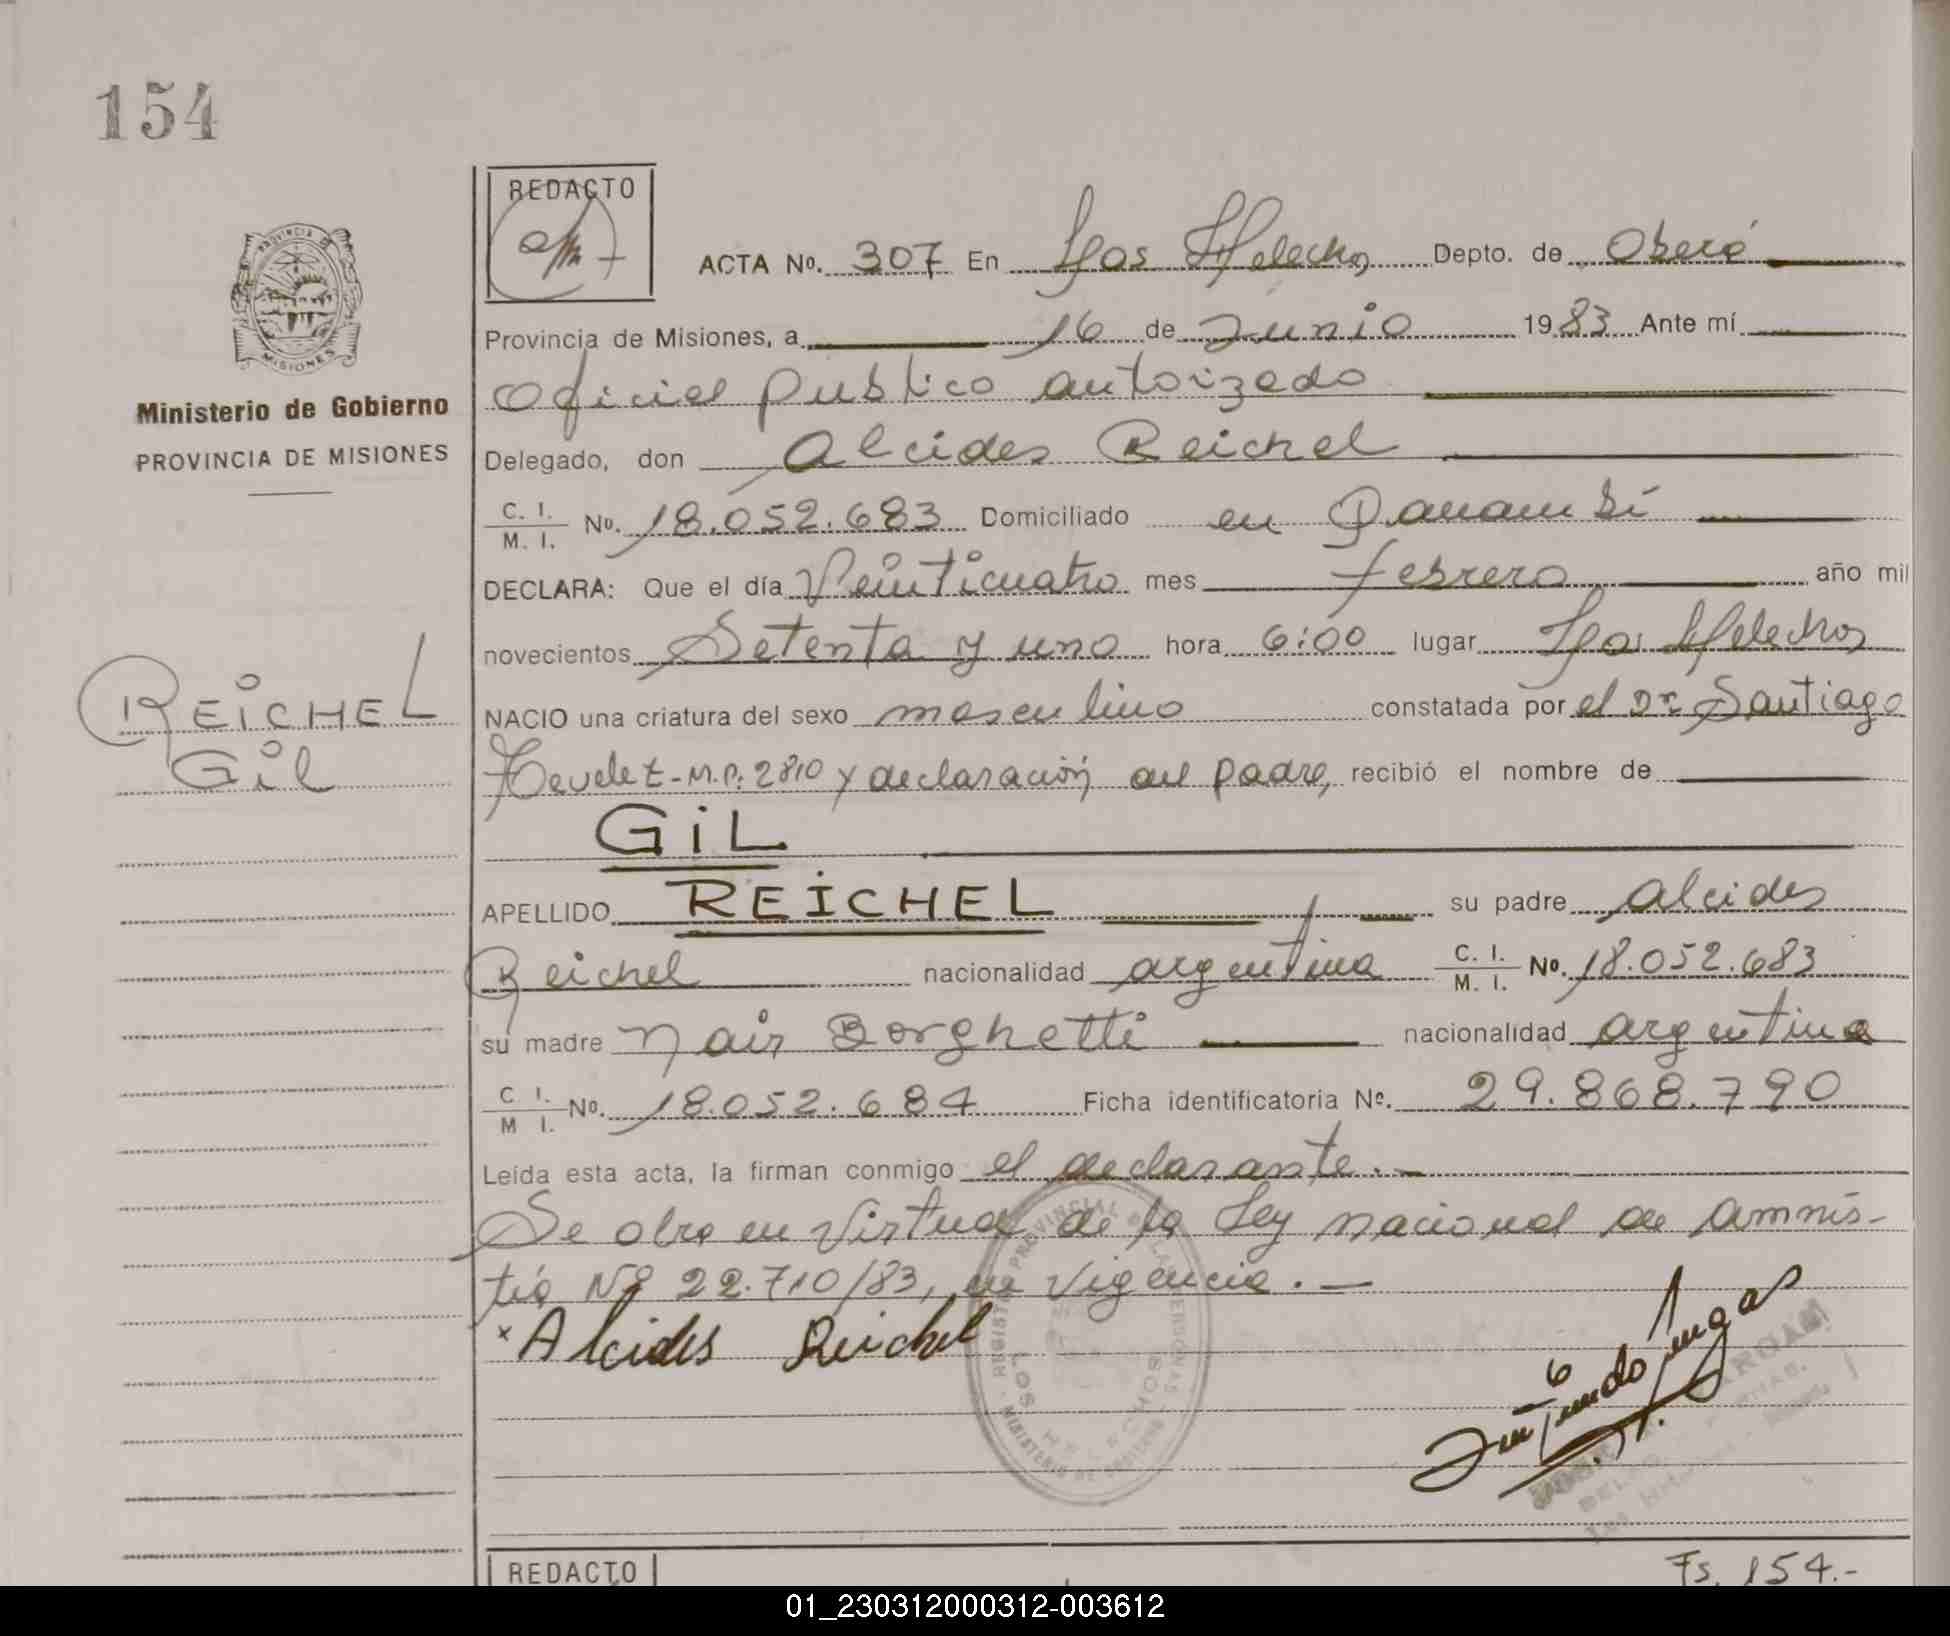 154
REDACTO
ACTA No. 307 En Los Helechos Depto. de Oberá
PROVINCIA DE
MISIONES
Provincia de Misiones, a 16 de Junio 1983 Ante mí
Ministerio de Gobierno
PROVINCIA DE MISIONES
Oficial Publico autorizado
Delegado, don Alcides Reichel
C. I. / M. I. No. 18.052.683 Domiciliado en Panambí
DECLARA: Que el día Veinticuatro mes febrero año mil
novecientos Setenta y uno hora 6:00 lugar Los Helechos
REICHEL
Gil
NACIO una criatura del sexo masculino constatada por el Dr. Santiago
M.P. 2810 y declaración del padre, recibió el nombre de
GiL
APELLIDO REICHEL su padre Alcides
Reichel nacionalidad argentina C. I. / M. I. No. 18.052.683
su madre Nair Borghetti nacionalidad argentina
C. I. / M. I. No. 18.052.684 Ficha identificatoria No. 29.868.790
Leída esta acta, la firman conmigo el declarante.-
Se obra en virtud de la Ley nacional de amnis-
tía Nº 22.710/83, en vigencia.-
x Alcides Reichel
REGISTRO PROVINCIAL DE LAS PERSONAS
MINISTERIO DE GOBIERNO
LOS HELECHOS
REDACTO
Fs. 154.-
01_230312000312-003612